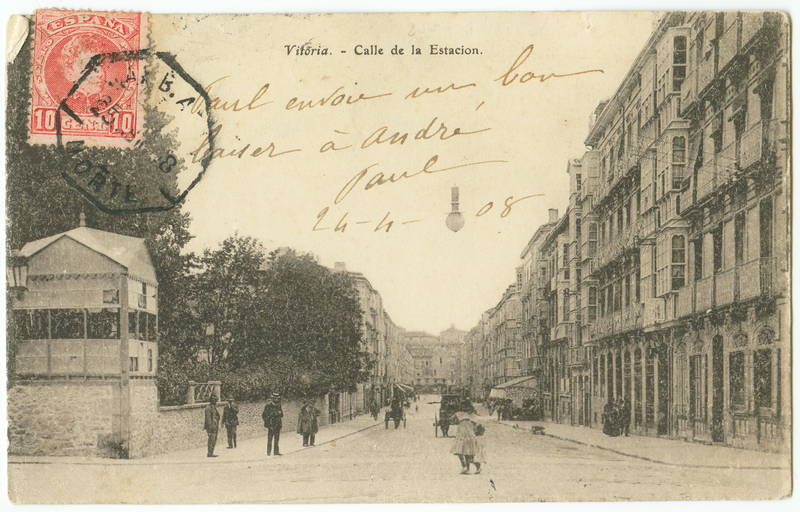 ESPAÑA
10 CENT. 10
NORTE
Vitória. - Calle de la Estacion.
Paul envoie un bon
baiser à André
Paul
24-4-08